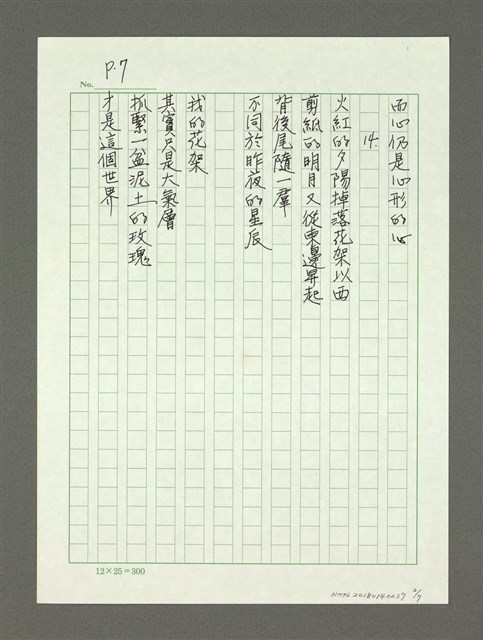 P.7
No.
而心仍是心形的心
14.
火紅的夕陽掉落花架以西
剪紙的明月又從東邊昇起
背後尾隨一群
不同於昨夜的星辰
我的花架
其實只是大氣層
抓緊一盆泥土的玫瑰
才是這個世界
12×25=300
NMTL20180140037